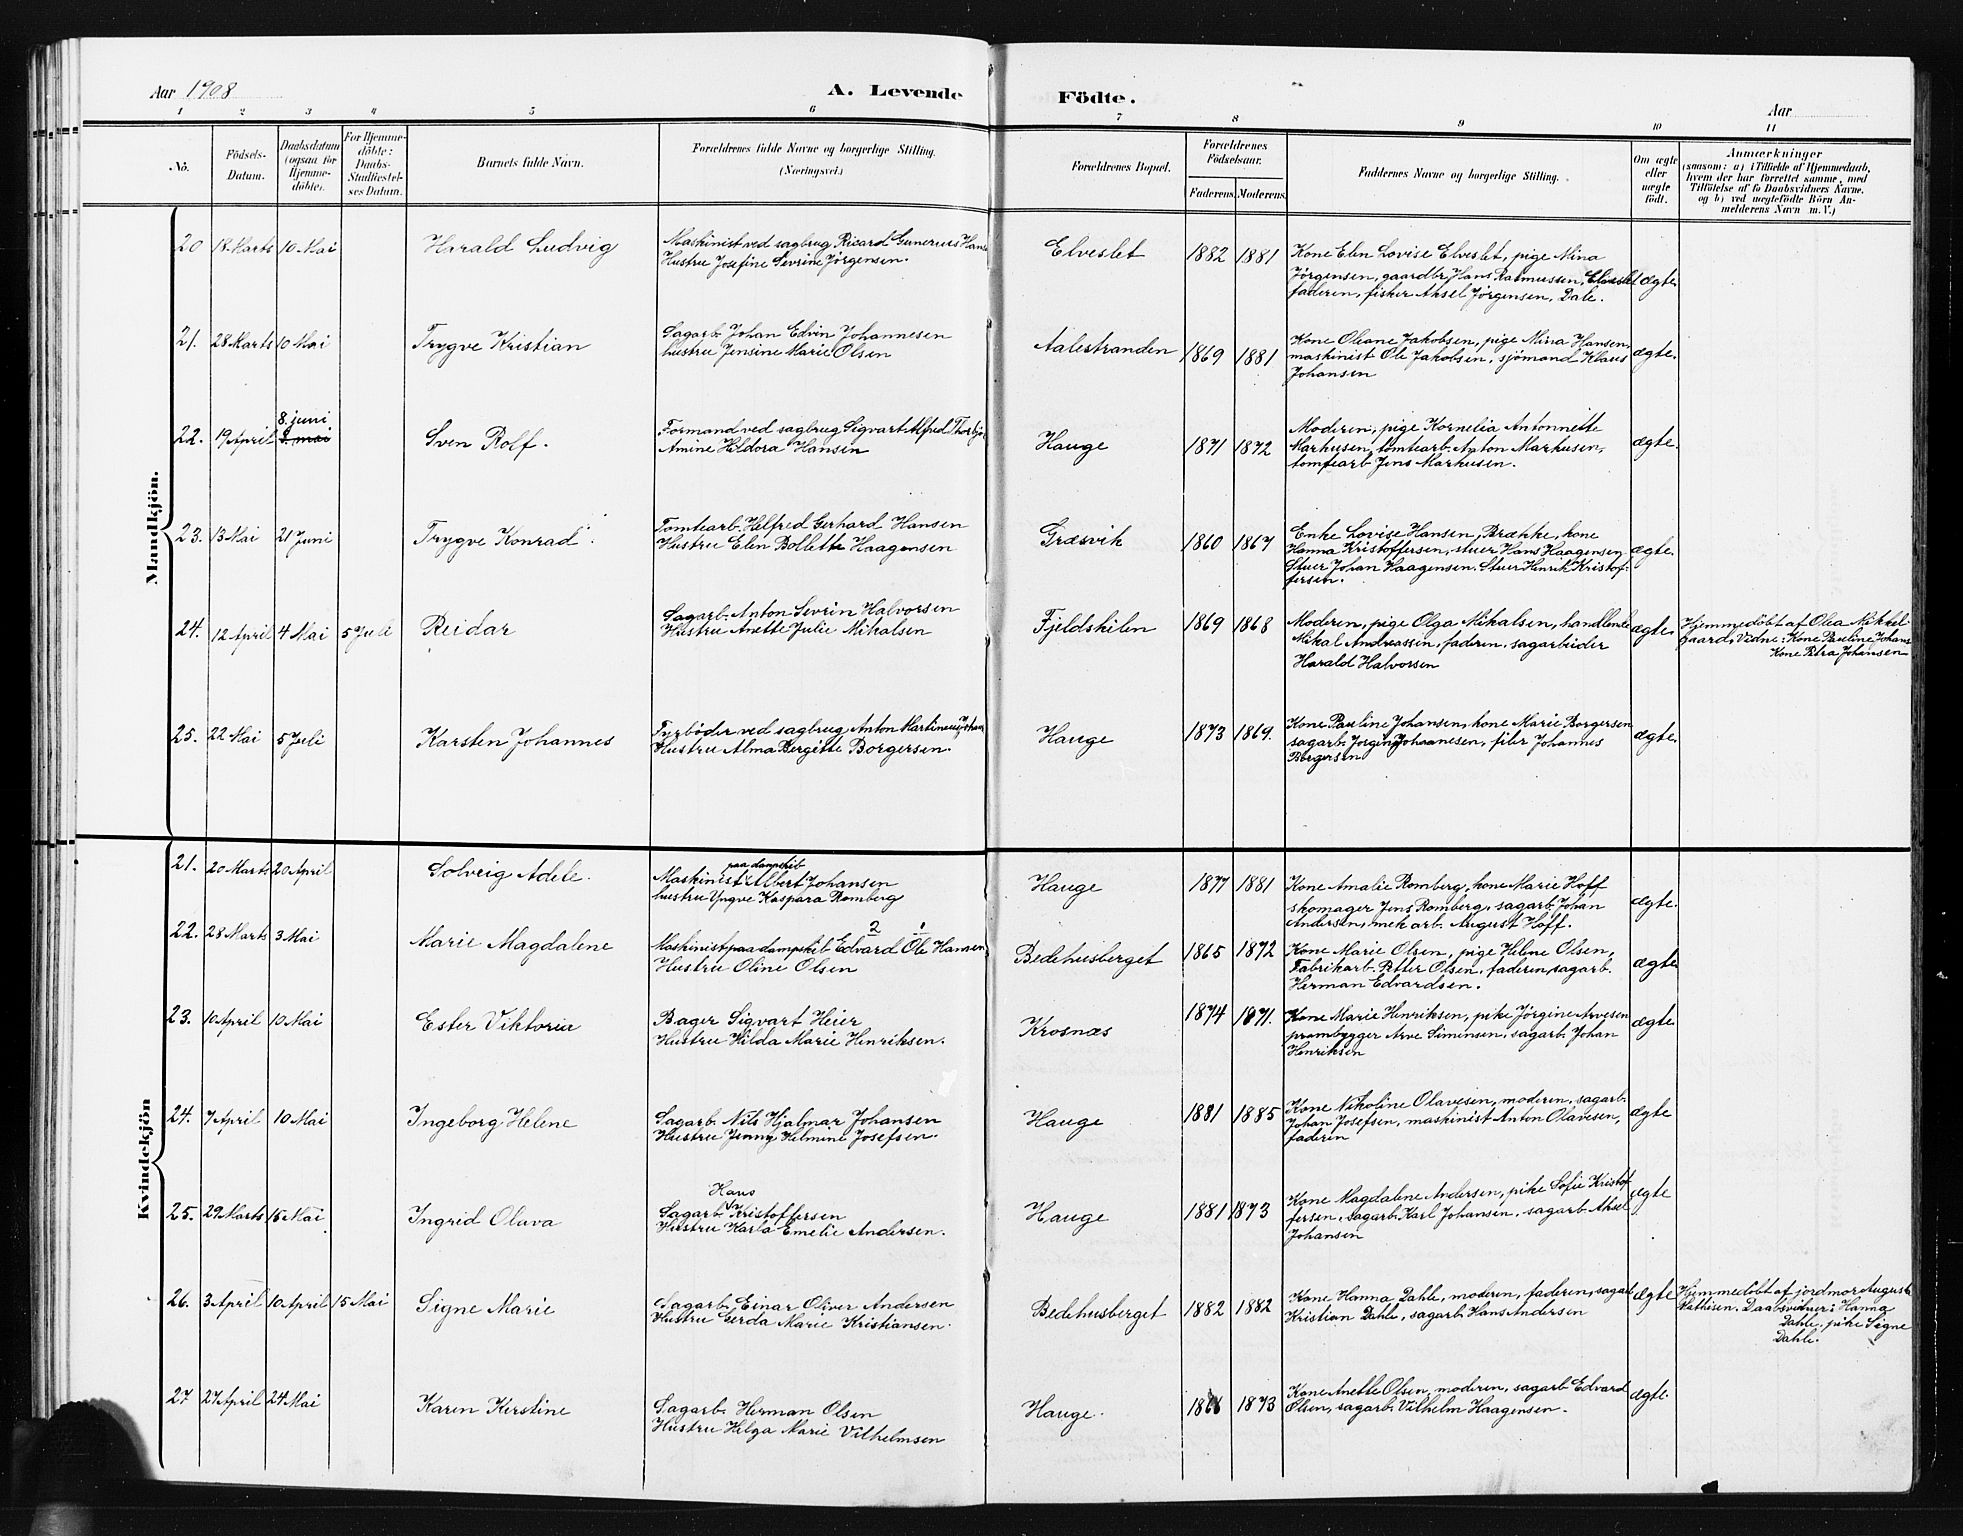 Aar 1908
A. Levende
Födte.
Aar
1 2 3 4 5 6 7 8 9 10 11
No.
Födsels-
Datum.
Daabsdatum
(ogsaa for
Hjemme-
döbte).
For Hjemme-
döbte:
Daabs-
Stadfæstel-
ses Datum.
Barnets fulde Navn.
Forældrenes fulde Navne og borgerlige Stilling.
(Næringsvei.)
Forældrenes Bopæl.
Forældrenes
Födselsaar.
Faderens. Moderens.
Faddernes Navne og borgerlige Stilling.
Om ægte
eller
uægte
födt.
Anmærkninger
(saasom: a) i Tilfælde af Hjemmedaab,
hvem der har forrettet samme, med
Tilföielse af to Daabsvidners Navne,
og b) ved uægtefödte Börn An-
melderens Navn m. V.)
Mandkjön.
20 18 Marts 10 Mai Harald Ludvig
Maskinist ved sagbrug Ricard Gunerius Hans
Hustru Josefine Sevrine Jørgensen.
Elveslet 1882 1881
Kone Elen Lovise Elveslet, pige Mina
Jörgensen, gaardbr. Hans Rasmussen, Elveslet
faderen, fisker Aksel Jørgensen, Dale.
ægte.
21. 28 Marts 10 Mai Trygve Kristian
Sagarb. Johan Edvin Johannesen
hustru Jensine Marie Olsen
Aalestranden 1869 1881
Kone Oleane Jakobsen, pige Mina Hansen,
maskinist Ole Jakobsen, sjömand Klaus
Johansen
ægte.
22. 19 April 8. juni
3. mai
Sven Rolf.
Formand ved sagbrug Sigvart Alfred Thorbjø
Amine Heldora Hansen
Hauge 1871 1872
Moderen, pige Kornelia Antonnette
Markusen, tomtearb. Anton Markusen,
tomtearb Jens Markusen.
ægte.
23. 13 Mai 21 Juni Trygve Konrad.
Tomtearb. Helfred Gerhard Hansen
Hustru Elen Bollette Haagensen
Græsvik 1860 1867
Enke Lovise Hansen, Brække, kone
Hanna Kristoffersen, stuer Hans Haagensen
Stuer Johan Haagensen. Stuer Henrik Kristof-
fersen.
ægte.
24. 12 April 4 Mai 5 Juli Reidar
Sagarb. Anton Sevrin Halvorsen
Hustru Anette Julie Mikalsen
Fjeldskilen 1869 1868
Moderen, pige Olga Mikalsen, handlende
Mikal Andreassen, faderen, sagarbeider
Harald Halvorsen
ægte.
Hjemmedöbt af Olea Mikkel
gaard, Vidne: Kone Pauline Johans
Kone Petra Johansen
25. 22 Mai 5 Juli Karsten Johannes
Fyrböder ved sagbrug Anton Martinius Johan
Hustru Alma Bergitte Borgersen.
Hauge 1873 1869.
Kone Pauline Johansen, kone Marie Borgersen
sagarb. Jørgine Johannesen, filer Johannes
Borgersen
ægte.
Kvindekjön
21. 20 Marts 20 April Solveig Adele.
paa dampskib
Maskinist Albert Johansen
hustru Yngve Kaspara Romberg
Hauge 1877 1881
Kone Amalie Romberg, kone Marie Hoff
skomager Jens Romberg, sagarb. Johan
Andersen, mek arb. August Hoff.
ægte.
22. 28 Marts 3 Mai Marie Magdalene
2 1
Maskinist paa dampskib Edvard Ole Hansen
Hustru Oline Olsen
Bedehusberget 1865 1872
Kone Marie Olsen, pige Helene Olsen,
Fabrikarb. Petter Olsen, faderen, sagarb.
Herman Edvardsen.
ægte
23. 10 April 10 Mai Ester Viktoria
Bager Sigvart Heier
Hustru Hilda Marie Henriksen.
Krosnæs 1874 1871.
Kone Marie Henriksen, pike Jörgine Arvesen
prambygger Arve Simensen, sagarb. Johan
Henriksen
ægte.
24. 7 April 10 Mai Ingeborg Helene
Sagarb. Nils Hjalmar Johansen
Hustru Jenny Helmine Josefsen.
Hauge 1881 1885
Kone Nikoline Olavesen, moderen, sagarb.
Johan Josefsen, maskinist Anton Olavesen,
faderen
ægte
25. 29 Marts 15 Mai Ingrid Olava
Hans
Sagarb. Kristoffersen
Hustru Karla Emelie Andersen.
Hauge 1881 1873
Kone Magdalene Andersen, pike Sofie Kristof
fersen, sagarb. Karl Johansen, sagarb. Aksel
Johansen
ægte
26. 3 April 10 April 15 Mai Signe Marie
Sagarb. Einar Oliver Andersen
Hustru Gerda Marie Kristiansen.
Bedehusberget 1882 1882
Kone Hanna Dahle, moderen, faderen, sagarb
Kristian Dahle, sagarb. Hans Andersen
ægte
Hjemmedöbt af jordmor Augusta
Mathisen, Daabsvidner: Hanna
Dahle, pike Signe
Dahle.
27 27 April 24 Mai Karen Kirstine
Sagarb. Herman Olsen
Hustru Helga Marie Vilhelmsen
Hauge. 1873
Kone Anette Olsen, moderen, sagarb Edvard
Olsen, sagarb. Vilhelm Haagensen.
ægte.